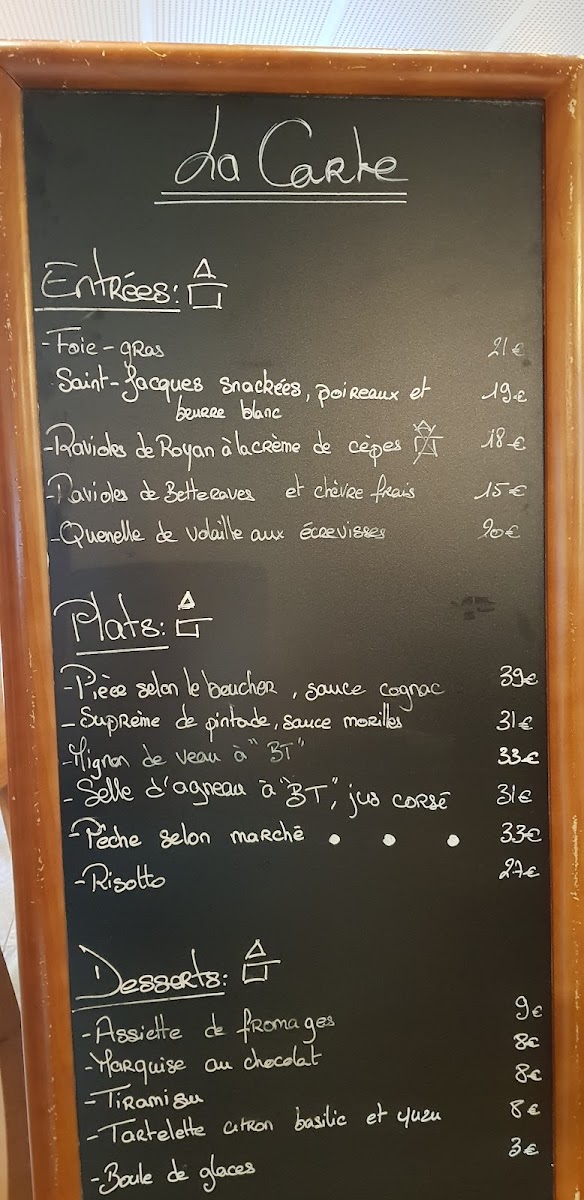 La Carte
Entrées:
- Foie-gras 21€
Saint-Jacques snackées, poireaux et 19€
beurre blanc
- Ravioles de Royan à la crème de cèpes 18€
- Ravioles de Betteraves et chèvre frais 15€
- Quenelle de volaille aux écrevisses 20€
Plats:
- Pièce selon le boucher, sauce cognac 39€
- Suprème de pintade, sauce morilles 31€
- Mignon de veau à "BT" 33€
- Selle d'agneau à "BT", jus corsé 31€
- Pêche selon marché . . . 33€
- Risotto 27€
Desserts:
- Assiette de fromages 9€
- Marquise au chocolat 8€
- Tiramisu 8€
- Tartelette citron basilic et yuzu 8€
- Boule de glaces 3€